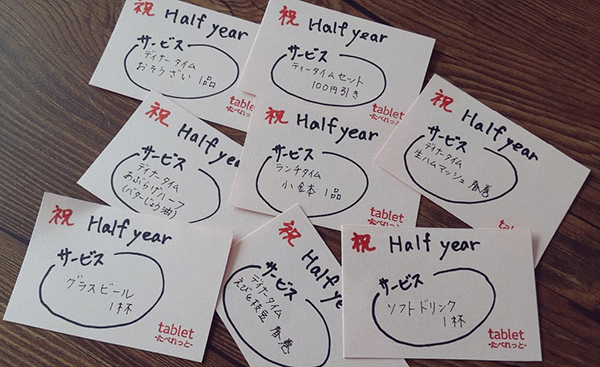 祝 Half year
サービス
ディナータイム
おそうざい 1品
tablet
-たべれっと-
祝 Half year
サービス
ティータイムセット
100円引き
tablet
-たべれっと-
祝 Half year
サービス
ディナータイム
生ハムマッシュ 春巻
tablet
-たべれっと-
祝 Half year
サービス
ディナータイム
あぶらげハーフ
(バターしょう油)
祝 Half year
サービス
ランチタイム
小鉢 1品
tablet
-たべれっと-
祝 Half year
サービス
グラスビール
1杯
tablet
-たべれっと-
祝 Half year
サービス
ディナータイム
えび&枝豆 春巻
tablet
-たべれっと-
祝 Half year
サービス
ソフトドリンク
1杯
tablet
-たべれっと-